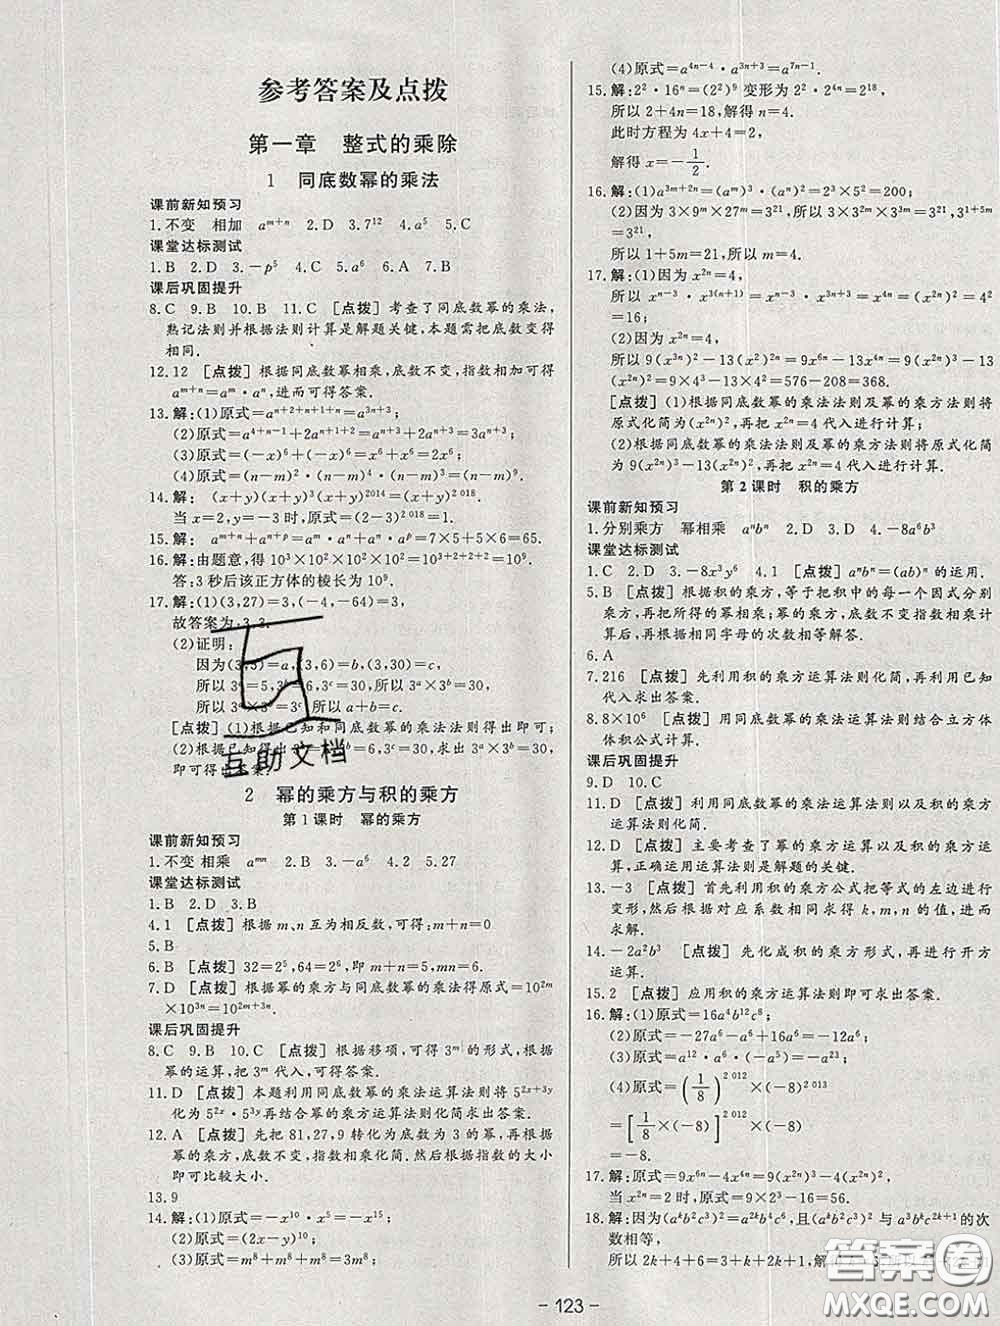 参考答案及点拨
第一章 整式的乘除
1 同底数幂的乘法
课前新知预习
1.不变 相加 a^{m+n} 2.D 3.7^{12} 4.a^5 5.C
课堂达标测试
1.B 2.D 3.-p^5 4.C 5.a^6 6.A 7.B
课后巩固提升
8.C 9.B 10.B 11.C [点拨]考查了同底数幂的乘法,
熟记法则并根据法则计算是解题关键,本题需把底数变得
相同.
12.12 [点拨]根据同底数幂相乘,底数不变,指数相加可得
a^{m+n}=a^m·a^n,进而可得答案.
13.解:(1)原式=a^{n+2+n+1+n}=a^{3n+3};
(2)原式=a^{4+n-1}+2a^{n+1+2}=a^{n+3}+2a^{n+3}=3a^{n+3};
(3)原式=(-x)^6+(-x)^6=x^6+x^6=2x^6;
(4)原式=(n-m)^2·(n-m)^4·(n-m)^2=(n-m)^8.
14.解:(x+y)(x+y)^3(x+y)^{2014}=(x+y)^{2 018}.
当x=2,y=-3时,原式=(2-3)^{2 018}=1.
15.解: a^{m+n}+a^{n+p}=a^m·a^n+a^n·a^p=7×5+5×6=65.
16.解:由题意,得10^3×10^2×10^2×10^2=10^{3+2+2+2}=10^9.
答:3秒后该正方体的棱长为10^9.
17.解:(1)(3,27)=3,(-4,-64)=3,
故答案为:3,3.
(2)证明:
因为(3,5)=a,(3,6)=b,(3,30)=c,
所以3^a=5,3^b=6,3^c=30,所以3^a×3^b=30,
所以3^a×3^b=3^c,所以a+b=c.
[点拨](1)根据已知和同底数幂的乘法法则得出即可;
(2)根据已知得出3^a=5,3^b=6,3^c=30,求出3^a×3^b=30,
即可得出答案.
互助文档
2 幂的乘方与积的乘方
第1课时 幂的乘方
课前新知预习
1.不变 相乘 a^{mn} 2.B 3.-a^6 4.2 5.27
课堂达标测试
1.B 2.D 3.B
4.1 [点拨]根据m、n互为相反数,可得:m+n=0
5.B
6.B [点拨]32=2^5,64=2^6,即m+n=6.
7.D [点拨]根据幂的乘方与同底数幂的乘法得原式=10^{2m}
×10^{3n}=10^{2m+3n}.
课后巩固提升
8.C 9.B 10.C [点拨]根据移项,可得3^m的形式,根据
幂的运算,把3^m代入,可得答案.
11.D [点拨]本题利用同底数幂的乘法运算法则将5^{2x+3y}
化为5^{2x}·5^{3y}再结合幂的乘方运算法则化简求出答案.
12.A [点拨]先把81,27,9转化为底数为3的幂,再根据幂
的乘方,底数不变,指数相乘化简.然后根据指数的大小
即可比较大小.
13.9
14.解:(1)原式=-x^{10}·x^5=-x^{15};
(2)原式=(2x-y)^{10};
(3)原式=m^8+m^8+m^8=3m^8;
(4)原式=a^{4n-4}·a^{3n+3}=a^{7n-1}.
15.解:2^2·16^n=(2^2)^9变形为2^2·2^{4n}=2^{18},
所以2+4n=18,解得n=4.
此时方程为4x+4=2,
解得x=-1/2.
16.解:(1)a^{3m+2n}=(a^m)^3·(a^n)^2=2^3×5^2=200;
(2)因为3×9^m×27^m=3^{21},所以3×3^{2m}×3^{3m}=3^{21},3^{1+5m}
=3^{21},
所以1+5m=21,所以m=4.
17.解:(1)因为x^{2n}=4,
所以x^{n-3}·x^{3(n+1)}=x^{n-3}·x^{3n+3}=x^{4n}=(x^{2n})^2=4^2
=16;
(2)因为x^{2n}=4,
所以9(x^{3n})^2-13(x^2)^{2n}=9x^{6n}-13x^{4n}=9(x^{2n})^3-13
(x^{2n})^2=9×4^3-13×4^2=576-208=368.
[点拨](1)根据同底数幂的乘法法则及幂的乘方法则将原
式化简为(x^{2n})^2,再把x^{2n}=4代入进行计算;
(2)根据同底数幂的乘法法则及幂的乘方法则将原式化简
为9(x^{2n})^3-13(x^{2n})^2,再把x^{2n}=4代入进行计算.
第2课时 积的乘方
课前新知预习
1.分别乘方 幂相乘 a^nb^n 2.D 3.D 4.-8a^6b^3
课堂达标测试
1.C 2.D 3.-8x^3y^6 4.1 [点拨]a^nb^n=(ab)^n的运用.
5.B [点拨]根据积的乘方,等于把积中的每一个因式分别
乘方,再把所得的幂相乘;幂的乘方,底数不变指数相乘计
算后,再根据相同字母的次数相等解答.
6.A
7.216 [点拨]先利用积的乘方运算法则化简,再利用已知
代入求出答案.
8.8×10^6 [点拨]用同底数幂的乘法运算法则结合立方体
体积公式计算.
课后巩固提升
9.D 10.C
11.D [点拨]利用同底数幂的乘法运算法则以及积的乘方
运算法则化简.
12.D [点拨]主要考查了幂的乘方运算以及积的乘方运
算,正确运用运算法则是解题的关键.
13.-3 [点拨]首先利用积的乘方公式把等式的左边进行
变形,然后根据对应系数相同求得k,m,n的值,进而
求解.
14.-2a^2b^3 [点拨]先化成积的乘方形式,再进行开方
运算.
15.2 [点拨]应用积的乘方运算法则即可求出答案.
16.解:(1)原式=16a^4b^{12}c^8;
(2)原式=-27a^6-a^6+16a^6=-12a^6;
(3)原式=a^{12}·a^6·(-a^5)=-a^{23};
(4)原式=(1/8)^{2 012}×(-8)^{2 013}
=[1/8×(-8)]^{2 012}×(-8)
=-8.
17.解:原式=9x^{6n}-4x^{4n}=9(x^{2n})^3-4(x^{2n})^2,
当x^{2n}=2时,原式=9×2^3-16=56.
18.解:因为(a^kb^2c^3)^2=a^{2k}b^4c^6,且(a^kb^2c^3)^2与a^3b^kc^{2k+1}的次
数相等,
所以2k+4+6=3+k+2k+1,解
答案圈
MXQE.COM
- 123 -